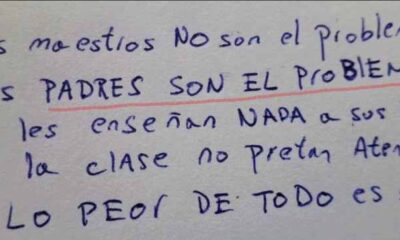 s maestros NO son el proble
s PADRES SON EL PROBLEM
les enseñan NADA a sus
la clase no pretan Aten
LO PEOR DE TODO es